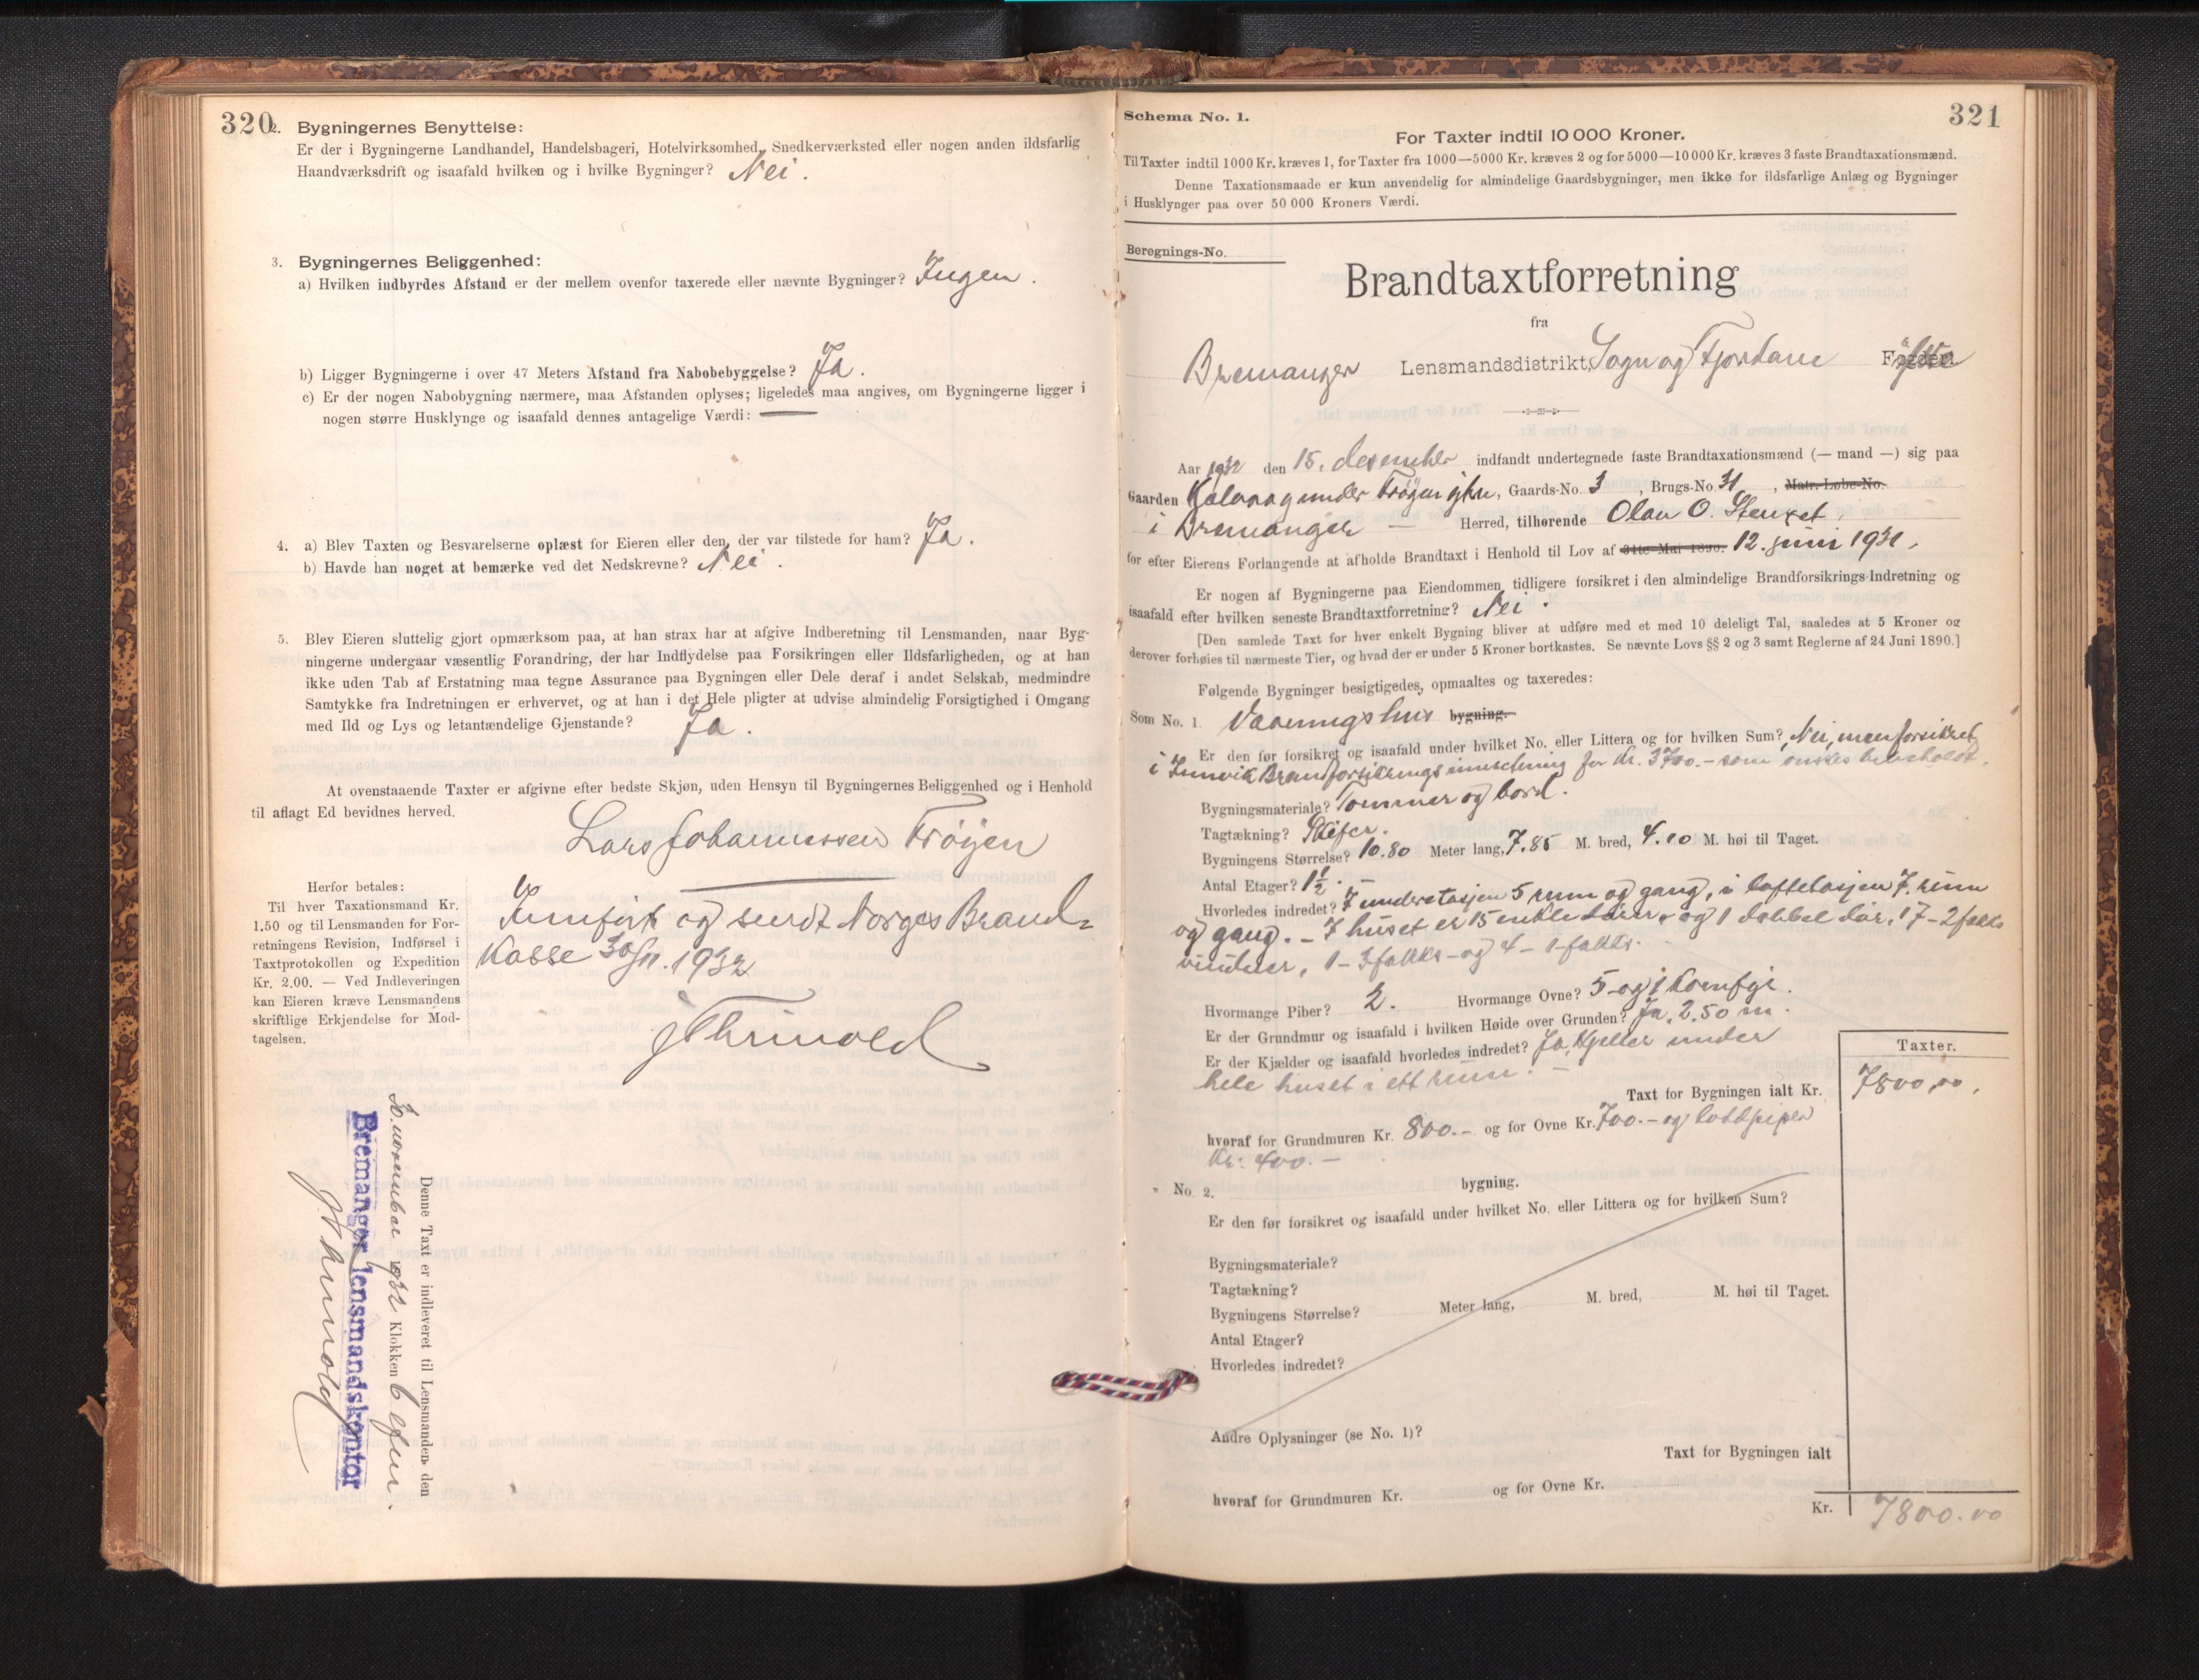 320
2. Bygningernes Benyttelse:
Er der i Bygningerne Landhandel, Handelsbageri, Hotelvirksomhed, Snedkerværksted eller nogen anden ildsfarlig
Haandværksdrift og isaafald hvilken og i hvilke Bygninger? Nei.
3. Bygningernes Beliggenhed:
a) Hvilken indbyrdes Afstand er der mellem ovenfor taxerede eller nævnte Bygninger? Ingen.
b) Ligger Bygningerne i over 47 Meters Afstand fra Nabobebyggelse? Ja.
c) Er der nogen Nabobygning nærmere, maa Afstanden oplyses; ligeledes maa angives, om Bygningerne ligger i
nogen større Husklynge og isaafald dennes antagelige Værdi: —
4. a) Blev Taxten og Besvarelserne oplæst for Eieren eller den, der var tilstede for ham? Ja.
b) Havde han noget at bemærke ved det Nedskrevne? Nei.
5. Blev Eieren sluttelig gjort opmærksom paa, at han strax har at afgive Indberetning til Lensmanden, naar Byg-
ningerne undergaar væsentlig Forandring, der har Indflydelse paa Forsikringen eller Ildsfarligheden, og at han
ikke uden Tab af Erstatning maa tegne Assurance paa Bygningen eller Dele deraf i andet Selskab, medmindre
Samtykke fra Indretningen er erhvervet, og at han i det Hele pligter at udvise almindelig Forsigtighed i Omgang
med Ild og Lys og letantændelige Gjenstande? Ja.
At ovenstaaende Taxter er afgivne efter bedste Skjøn, uden Hensyn til Bygningernes Beliggenhed og i Henhold
til aflagt Ed bevidnes herved.
Lars Johannessen Frøyen
Herfor betales:
Til hver Taxationsmand Kr.
1.50 og til Lensmanden for For-
retningens Revision, Indførsel i
Taxtprotokollen og Expedition
Kr. 2.00. — Ved Indleveringen
kan Eieren kræve Lensmandens
skriftlige Erkjendelse for Mod-
tagelsen.
Innført og sendt Norges Brand-
kasse 30/11. 1932
Denne Taxt er indleveret til Lensmanden den
30. november 1932 Klokken 6 efm.
Bremanger lensmandskontor
321
Schema No. 1.
For Taxter indtil 10 000 Kroner.
Til Taxter indtil 1000 Kr. kræves 1, for Taxter fra 1000—5000 Kr. kræves 2 og for 5000—10 000 Kr. kræves 3 faste Brandtaxationsmænd.
Denne Taxationsmaade er kun anvendelig for almindelige Gaardsbygninger, men ikke for ildsfarlige Anlæg og Bygninger
i Husklynger paa over 50 000 Kroners Værdi.
Beregnings-No.
Brandtaxtforretning
fra
Bremanger Lensmandsdistrikt, Sogn og Fjordane
Aar 1932 den 15. desember indfandt undertegnede faste Brandtaxationsmænd (— mand —) sig paa
Gaarden Kalvaag under Frøyen ytre, Gaards-No. 3, Brugs-No. 31, Matr.-Løbe-No.
i Bremanger — Herred, tilhørende Olav O. Stenset,
for efter Eierens Forlangende at afholde Brandtaxt i Henhold til Lov af 31te Mai 1890. 12. juni 1931.
Er nogen af Bygningerne paa Eiendommen tidligere forsikret i den almindelige Brandforsikrings-Indretning og
isaafald efter hvilken seneste Brandtaxtforretning? Nei.
[Den samlede Taxt for hver enkelt Bygning bliver at udføre med et med 10 deleligt Tal, saaledes at 5 Kroner og
derover forhøies til nærmeste Tier, og hvad der er under 5 Kroner bortkastes. Se nævnte Lovs §§ 2 og 3 samt Reglerne af 24 Juni 1890.]
Følgende Bygninger besigtigedes, opmaaltes og taxeredes:
Som No. 1. Vaaningshus bygning.
Er den før forsikret og isaafald under hvilket No. eller Littera og for hvilken Sum? Nei, men forsikret
i Innvik Brandforsikringsinnretning for Kr. 3700.- som ønskes beholdt.
Bygningsmateriale? Tømmer og bord.
Tagtækning? Skifer.
Bygningens Størrelse? 10.80 Meter lang, 7.85 M. bred, 4.10 M. høi til Taget.
Antal Etager? 1½.
Hvorledes indredet? I underetasjen 5 rum og gang, i loftetasjen 7 rum
og gang. - I huset er 15 enkle dører og 1 dobbel dør, 17 - 2 fakks
vinduer, 1 - 3 fakks - og 4 - 1 fakks.
Hvormange Piber? 2. Hvormange Ovne? 5 og 1 komfyr.
Er der Grundmur og isaafald i hvilken Høide over Grunden? Ja. 2.50 m.
Er der Kjælder og isaafald hvorledes indredet? Ja, Kjeller under
hele huset i ett rum. -
Taxter.
Taxt for Bygningen ialt Kr. 7800,00,
hvoraf for Grundmuren Kr. 800.- og for Ovne Kr. 700.- og loddpiper
Kr: 400.-
No. 2. bygning.
Er den før forsikret og isaafald under hvilket No. eller Littera og for hvilken Sum?
Bygningsmateriale?
Tagtækning?
Bygningens Størrelse? Meter lang, M. bred, M. høi til Taget.
Antal Etager?
Hvorledes indredet?
Andre Oplysninger (se No. 1)?
Taxt for Bygningen ialt
hvoraf for Grundmuren Kr. og for Ovne Kr.
Kr. 7800.00